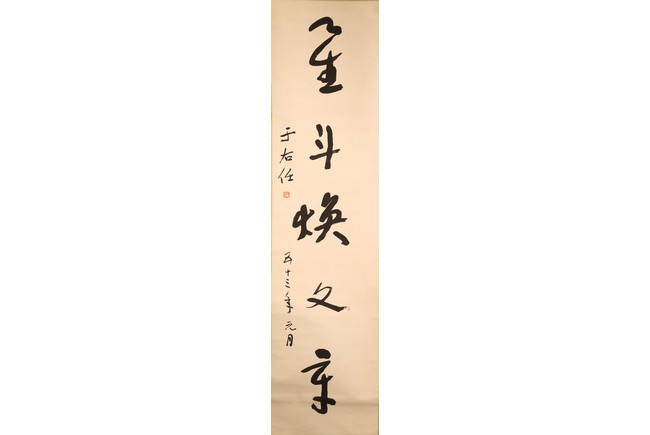 星斗煥文章
于右任
五十三年元月